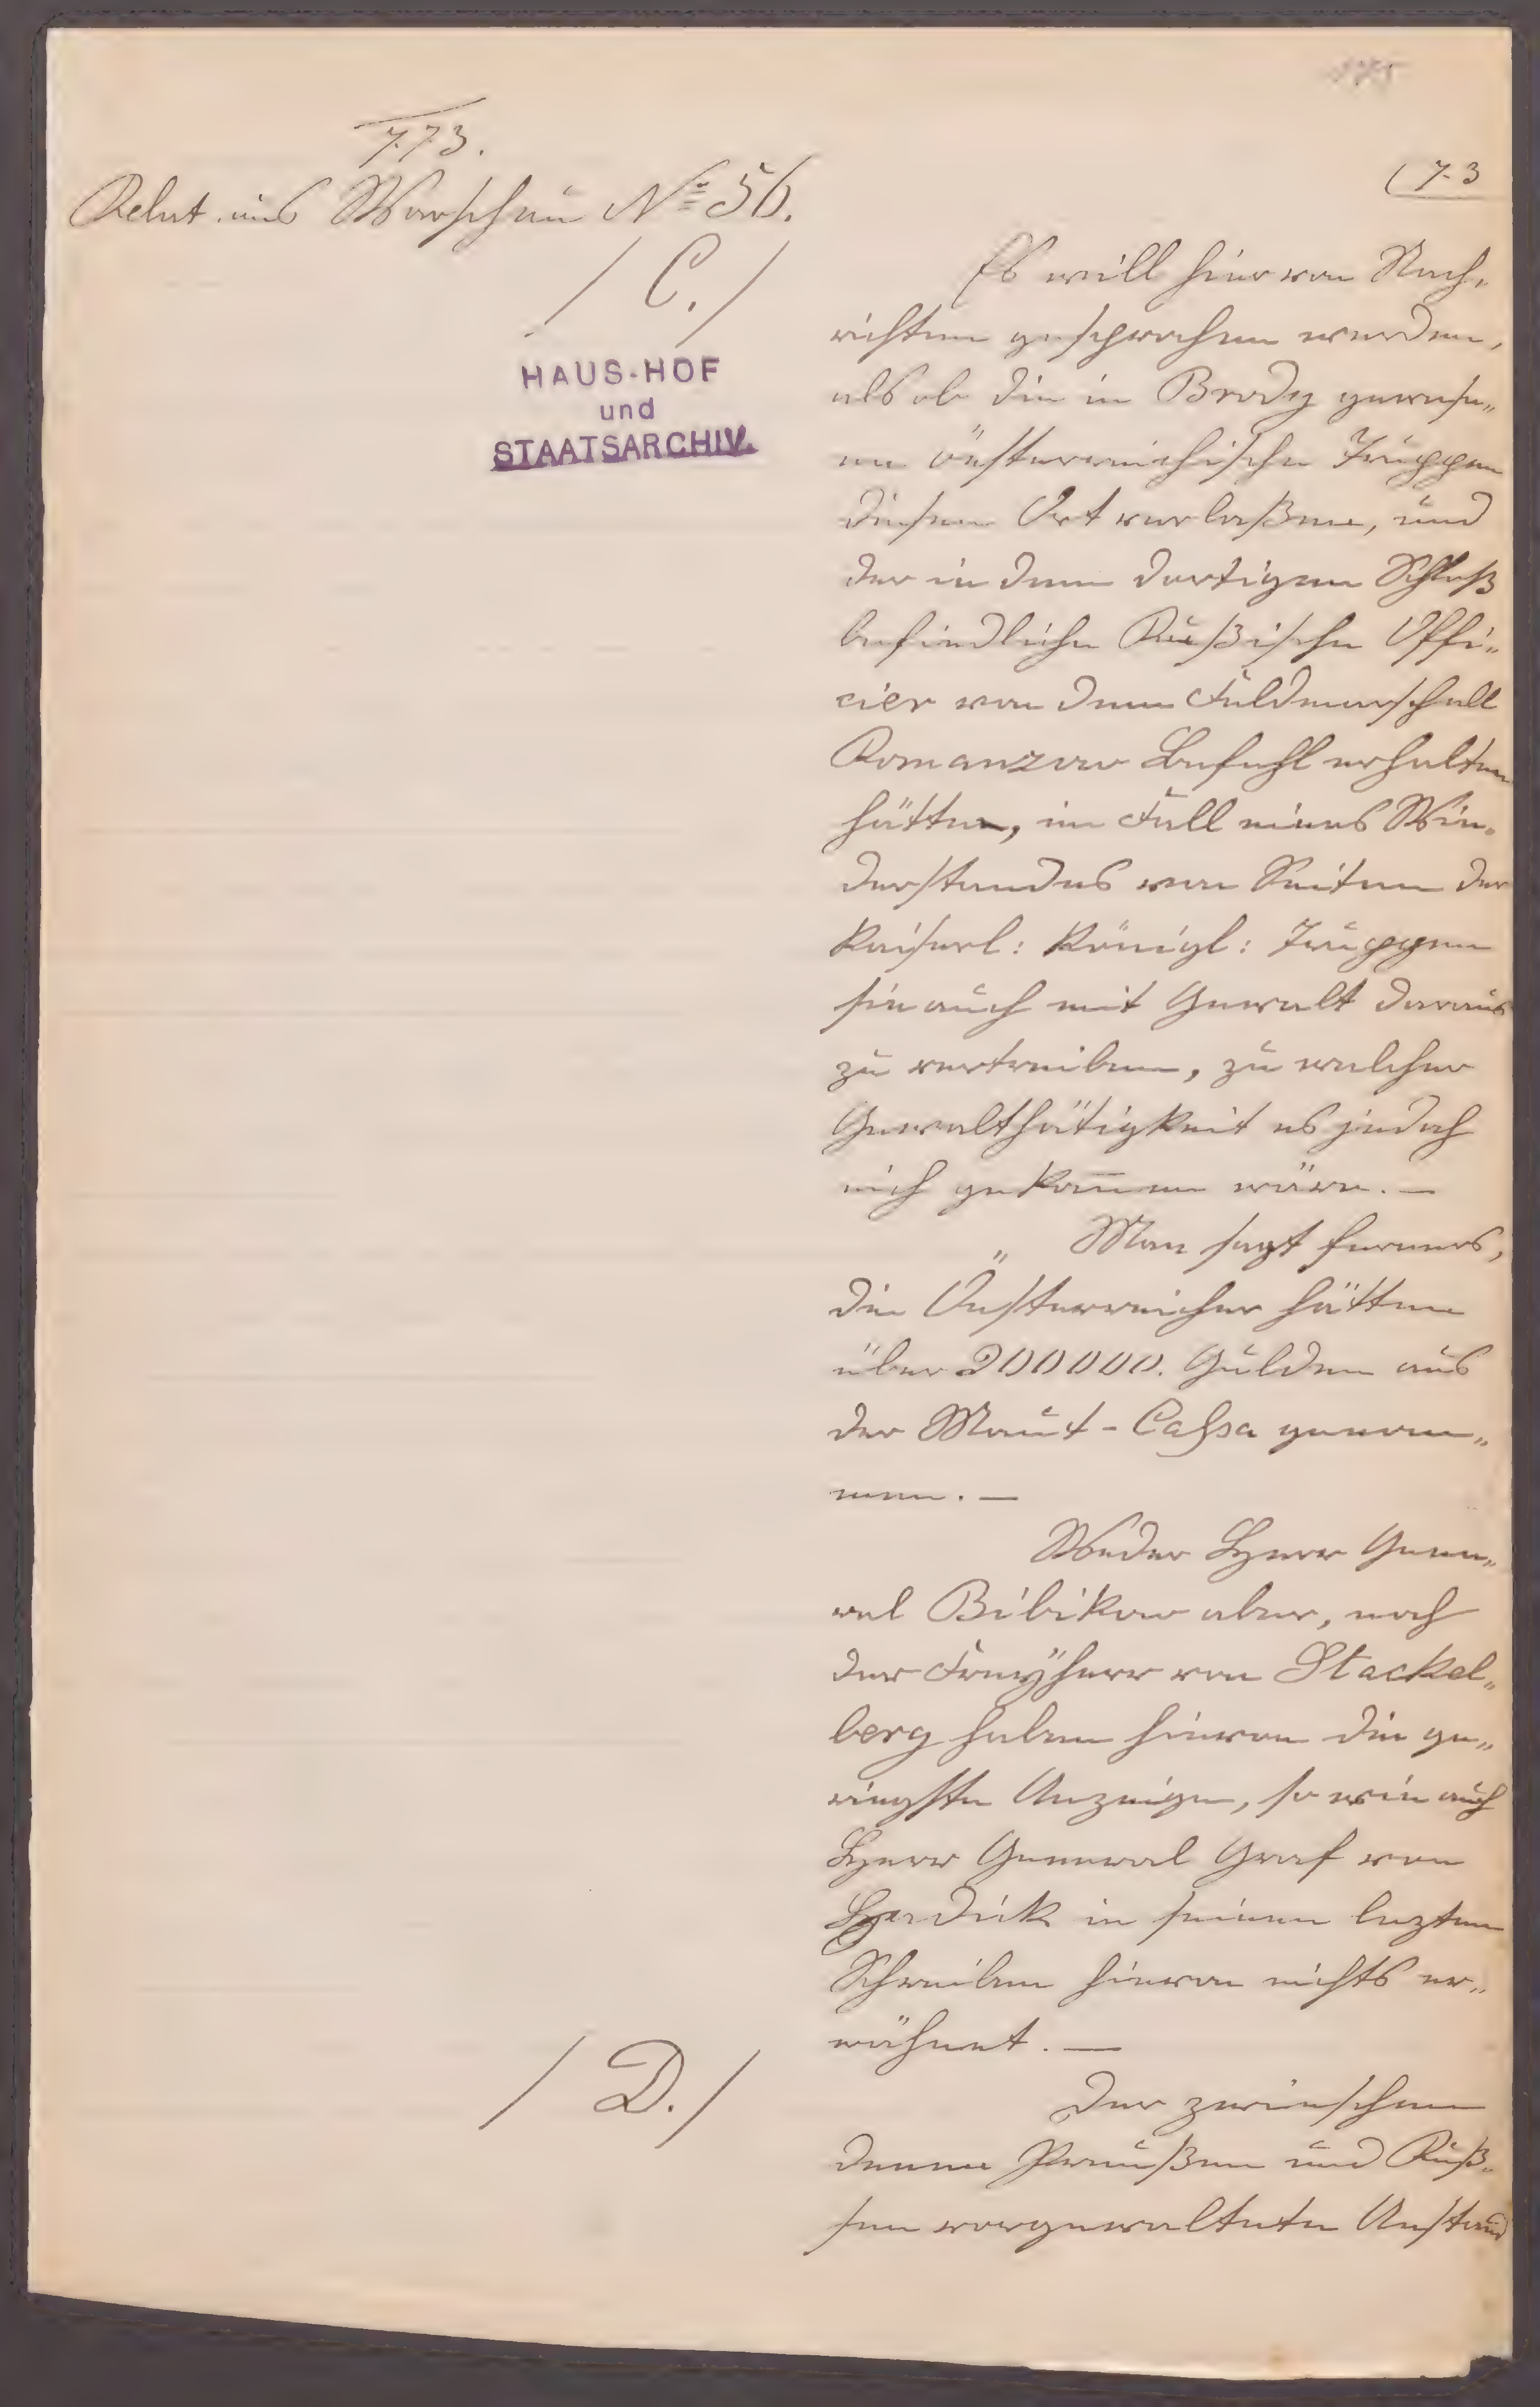 773.
Relat. aus Warschau Nº 56.
/ C. /
HAUS-HOF
und
STAATSARCHIV.
(73
Es will hier von Nach„
richten gesprochen werden,
als ob die in Brody gewese„
ne öesterreichische Truppen
diesen Ort verlaßen, und
der in dem dortigen Schloß
befindliche Rußische Offi„
cier von dem Feldmarschall
Romanzow Befehl erhalten
hätten, im Fall eines Wie„
derstandes von Seiten der
Kaiserl: Königl: Truppen
sie auch mit Gewalt daraus
zu vertreiben, zu welcher
Gewaltthätigkeit es jedoch
nich gekom̄en wäre. —
„ Man sagt ferners,
die Oesterreicher hätten
über 200000. Gulden aus
der Maut-Cassa genom„
men. —
Weder Herr Gene„
ral Bibikow aber, noch
der Freÿherr von Stackel„
berg haben hievon die ge„
ringste Anzeige, so wie auch
Herr General Graf von
Hadick in seinem lezten
Schreiben hievon nichts er„
wähnet. —
/ D. /
Der zwieschen
denen Preußen und Ruß„
sen vorgewaltete Anstand